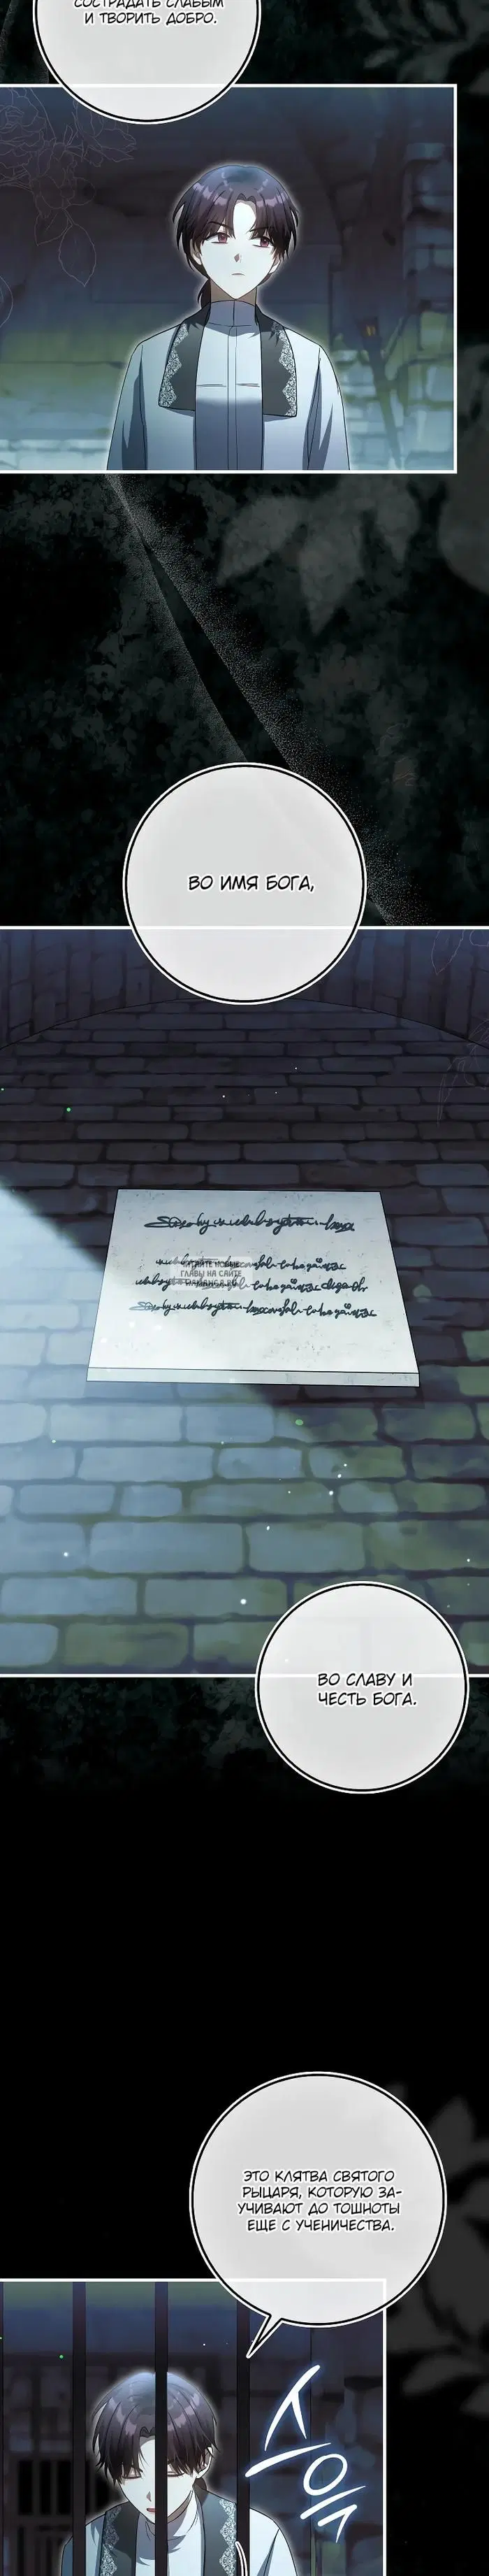 СОСТРАДАТЬ СЛАБЫМ
И ТВОРИТЬ ДОБРО.
ВО ИМЯ БОГА,
ЧИТАЙТЕ НОВЫЕ
ГЛАВЫ НА САЙТЕ
ВО СЛАВУ И
ЧЕСТЬ БОГА.
ЭТО КЛЯТВА СВЯТОГО
РЫЦАРЯ, КОТОРУЮ ЗА-
УЧИВАЮТ ДО ТОШНОТЫ
ЕЩЕ С УЧЕНИЧЕСТВА.
스윽